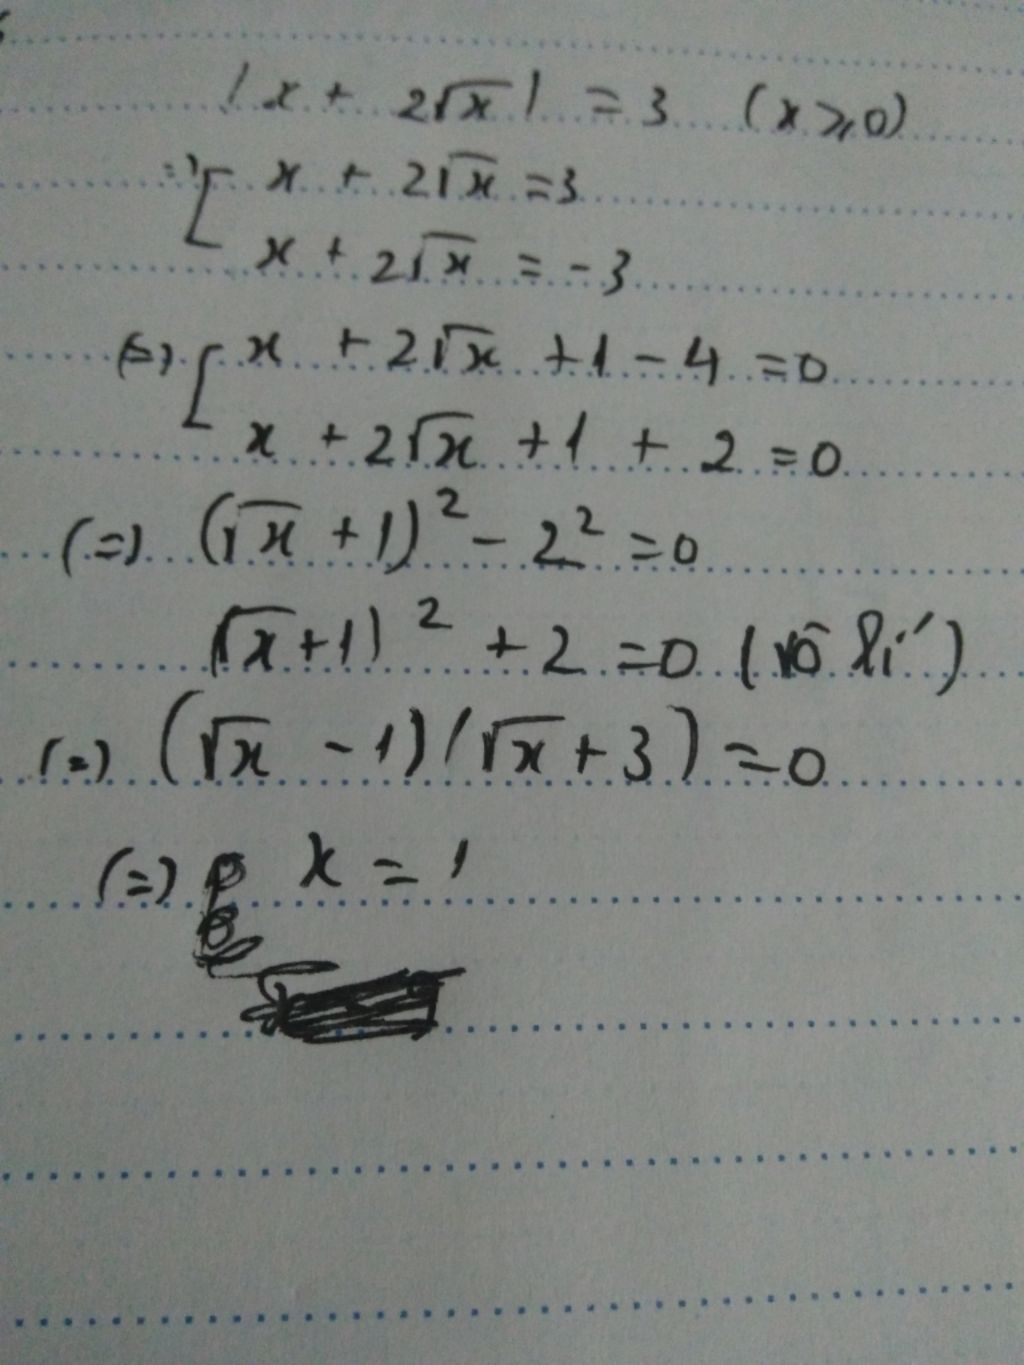 |x + 2√x| = 3 (x ≥ 0)
=> [ x + 2√x = 3
x + 2√x = -3
(=) [ x + 2√x + 1 - 4 = 0
x + 2√x + 1 + 2 = 0
(=) (√x + 1)² - 2² = 0
√x + 1)² + 2 = 0 (vô lí)
(=) (√x - 1)(√x + 3) = 0
(=) x = 1